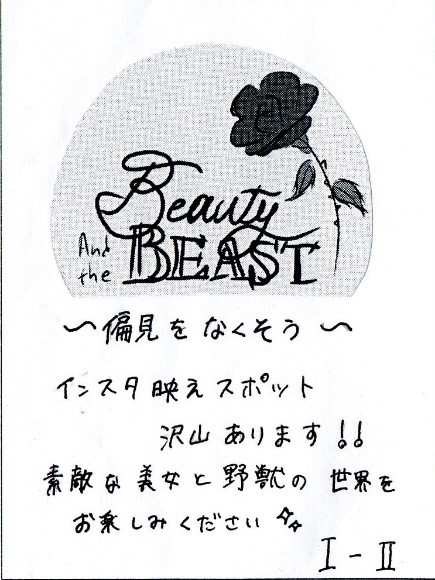 Beauty
And
the
BEAST
〜偏見をなくそう〜
インスタ映えスポット
沢山あります!!
素敵な美女と野獣の世界を
お楽しみください✨
I-II